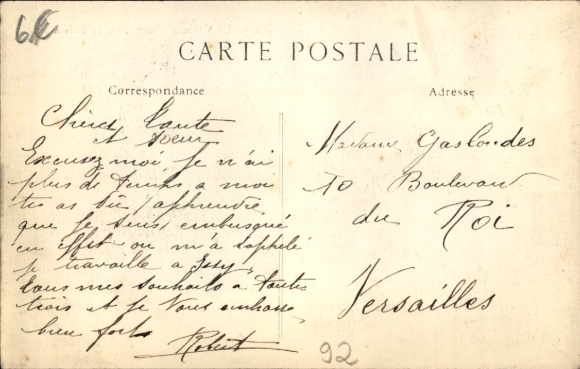 6
CARTE POSTALE
Correspondance
Adresse
Chères Tante
et Soeur
Excusez moi, je n'ai
plus de temps a moi
tu as dû apprendre
que je suis embusqué
en effet on m'a rappelé
je travaille a Issy,
tous mes souhaits a toutes
trois et je vous embrasse
bien fort
Robert
Madame Gaslondes
10 Boulevard
du Roi
Versailles
92